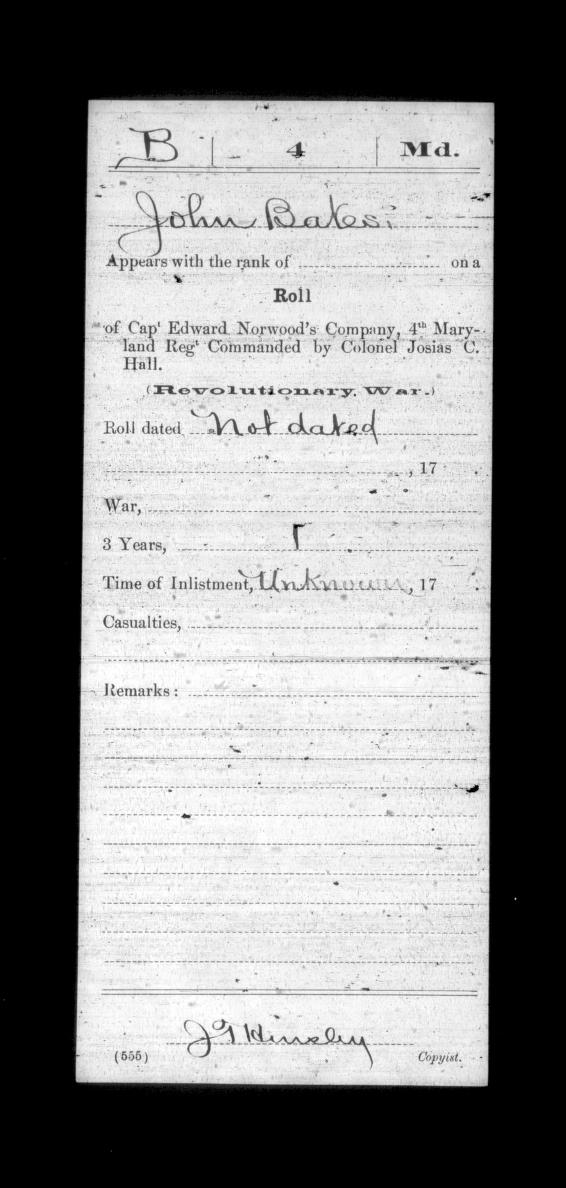 B | 4 | Md.
John Bates
Appears with the rank of on a
Roll
of Capt Edward Norwood's Company, 4th Mary-
land Regt Commanded by Colonel Josias C.
Hall.
(Revolutionary War.)
Roll dated Not dated
, 17 .
War,
3 Years, 1
Time of Inlistment, Unknown, 17 .
Casualties,
Remarks:
J T Hinsley
(555) Copyist.